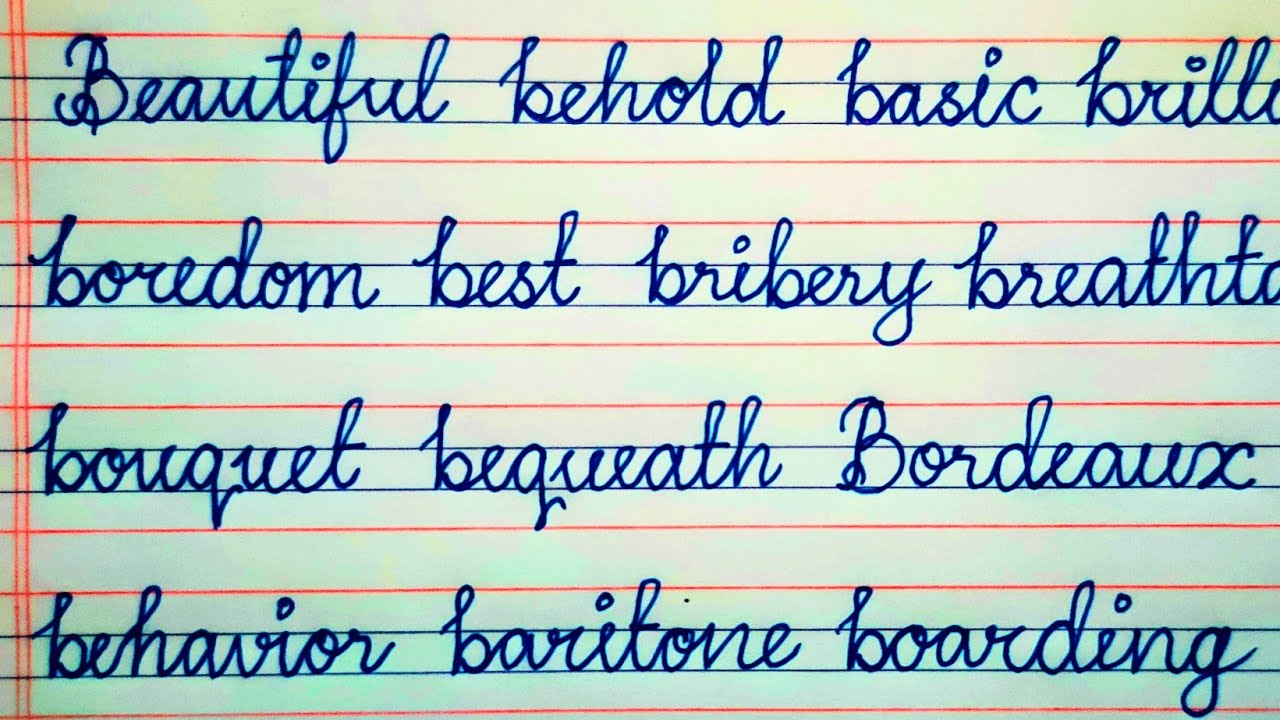 Beautiful behold basic brilli
boredom best bribery breathta
bouquet bequeath Bordeaux
behavior baritone boarding